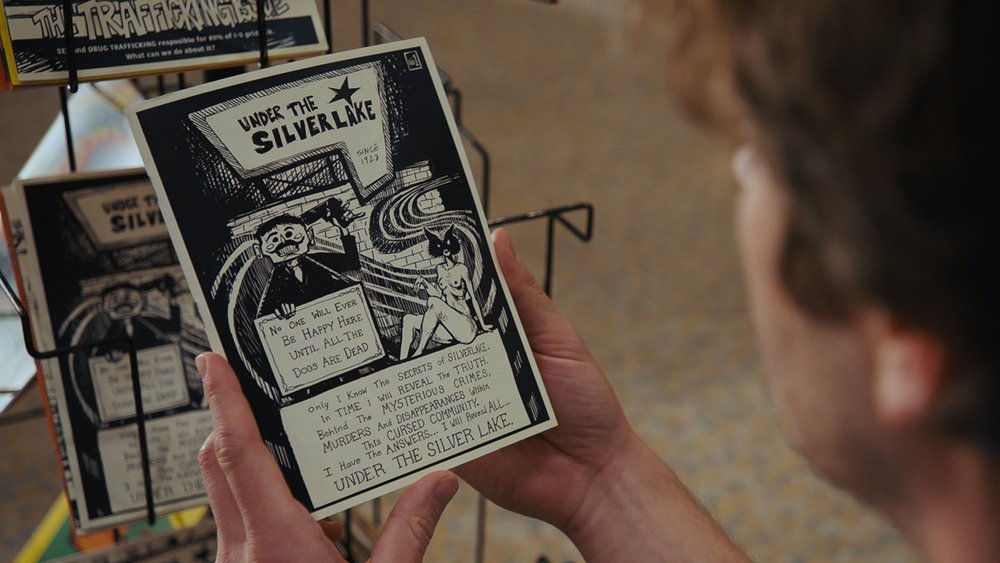 THE TRAFFICKING ISSUE
SEX and DRUG TRAFFICKING resposible for 80% of I-5
What can we do about it?
UNDER THE
SILVERLAKE
SINCE
1920
No One Will Ever
Be Happy Here
Until All The
Dogs Are Dead
Only I Know The SECRETS of SILVERLAKE.
In TIME I Will REVEAL The TRUTH.
Behind The MYSTERIOUS CRIMES,
MURDERS And DISAPPEARANCES Within
This CURSED COMMUNITY.
I Have The ANSWERS... I Will Reveal ALL...
UNDER THE SILVER LAKE.
UNDER THE
SILVER
No One Will Ever
Be Happy Here
Until All The
Dogs Are Dead